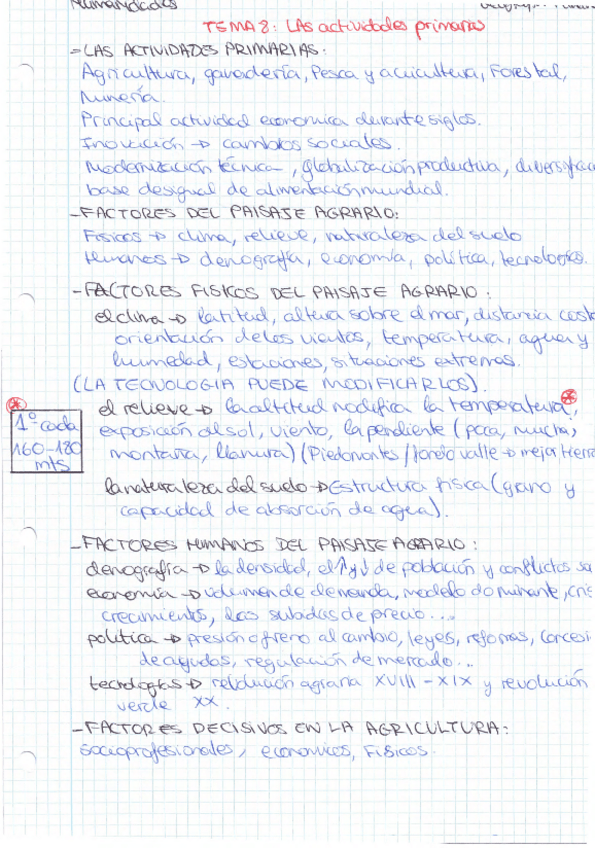 Humanidades
TEMA 8: LAS actividades primarias
- LAS ACTIVIDADES PRIMARIAS:
Agricultura, ganadería, Pesca y acuicultura, Forestal,
Minería.
Principal actividad economica durante siglos.
Inovación → cambios sociales.
Modernización técnica, globalización productiva,
base desigual de alimentación mundial.
- FACTORES DEL PAISAJE AGRARIO:
Físicos → clima, relieve, naturaleza del suelo
Humanos → demografía, economía, política, tecnologías.
- FACTORES FISICOS DEL PAISAJE AGRARIO:
el clima → latitud, altura sobre el mar, distancia
orientación de los vientos, temperatura, agua y
humedad, estaciones, situaciones extremas.
(LA TECNOLOGIA PUEDE MODIFICARLOS).
el relieve → la altitud modifica la temperatura,
exposición al sol, viento, la pendiente (poca, mucha,
montaña, llanura) (Piedemontes / fondo valle → mejor
1º cada
160-180
mts
la naturaleza del suelo → Estructura física (grano y
capacidad de absorción de agua).
- FACTORES HUMANOS DEL PAISAJE AGRARIO:
demografía → la densidad, el ↑ y ↓ de población y conflictos
economía → volumen de demanda, modelo dominante,
crecimientos, las subidas de precio...
política → presión o freno al cambio, leyes, reformas,
de ayudas, regulación de mercado...
tecnologías → revolución agraria XVIII - XIX y revolución
verde XX.
- FACTORES DECISIVOS EN LA AGRICULTURA:
Socioprofesionales, economicos, Físicos.